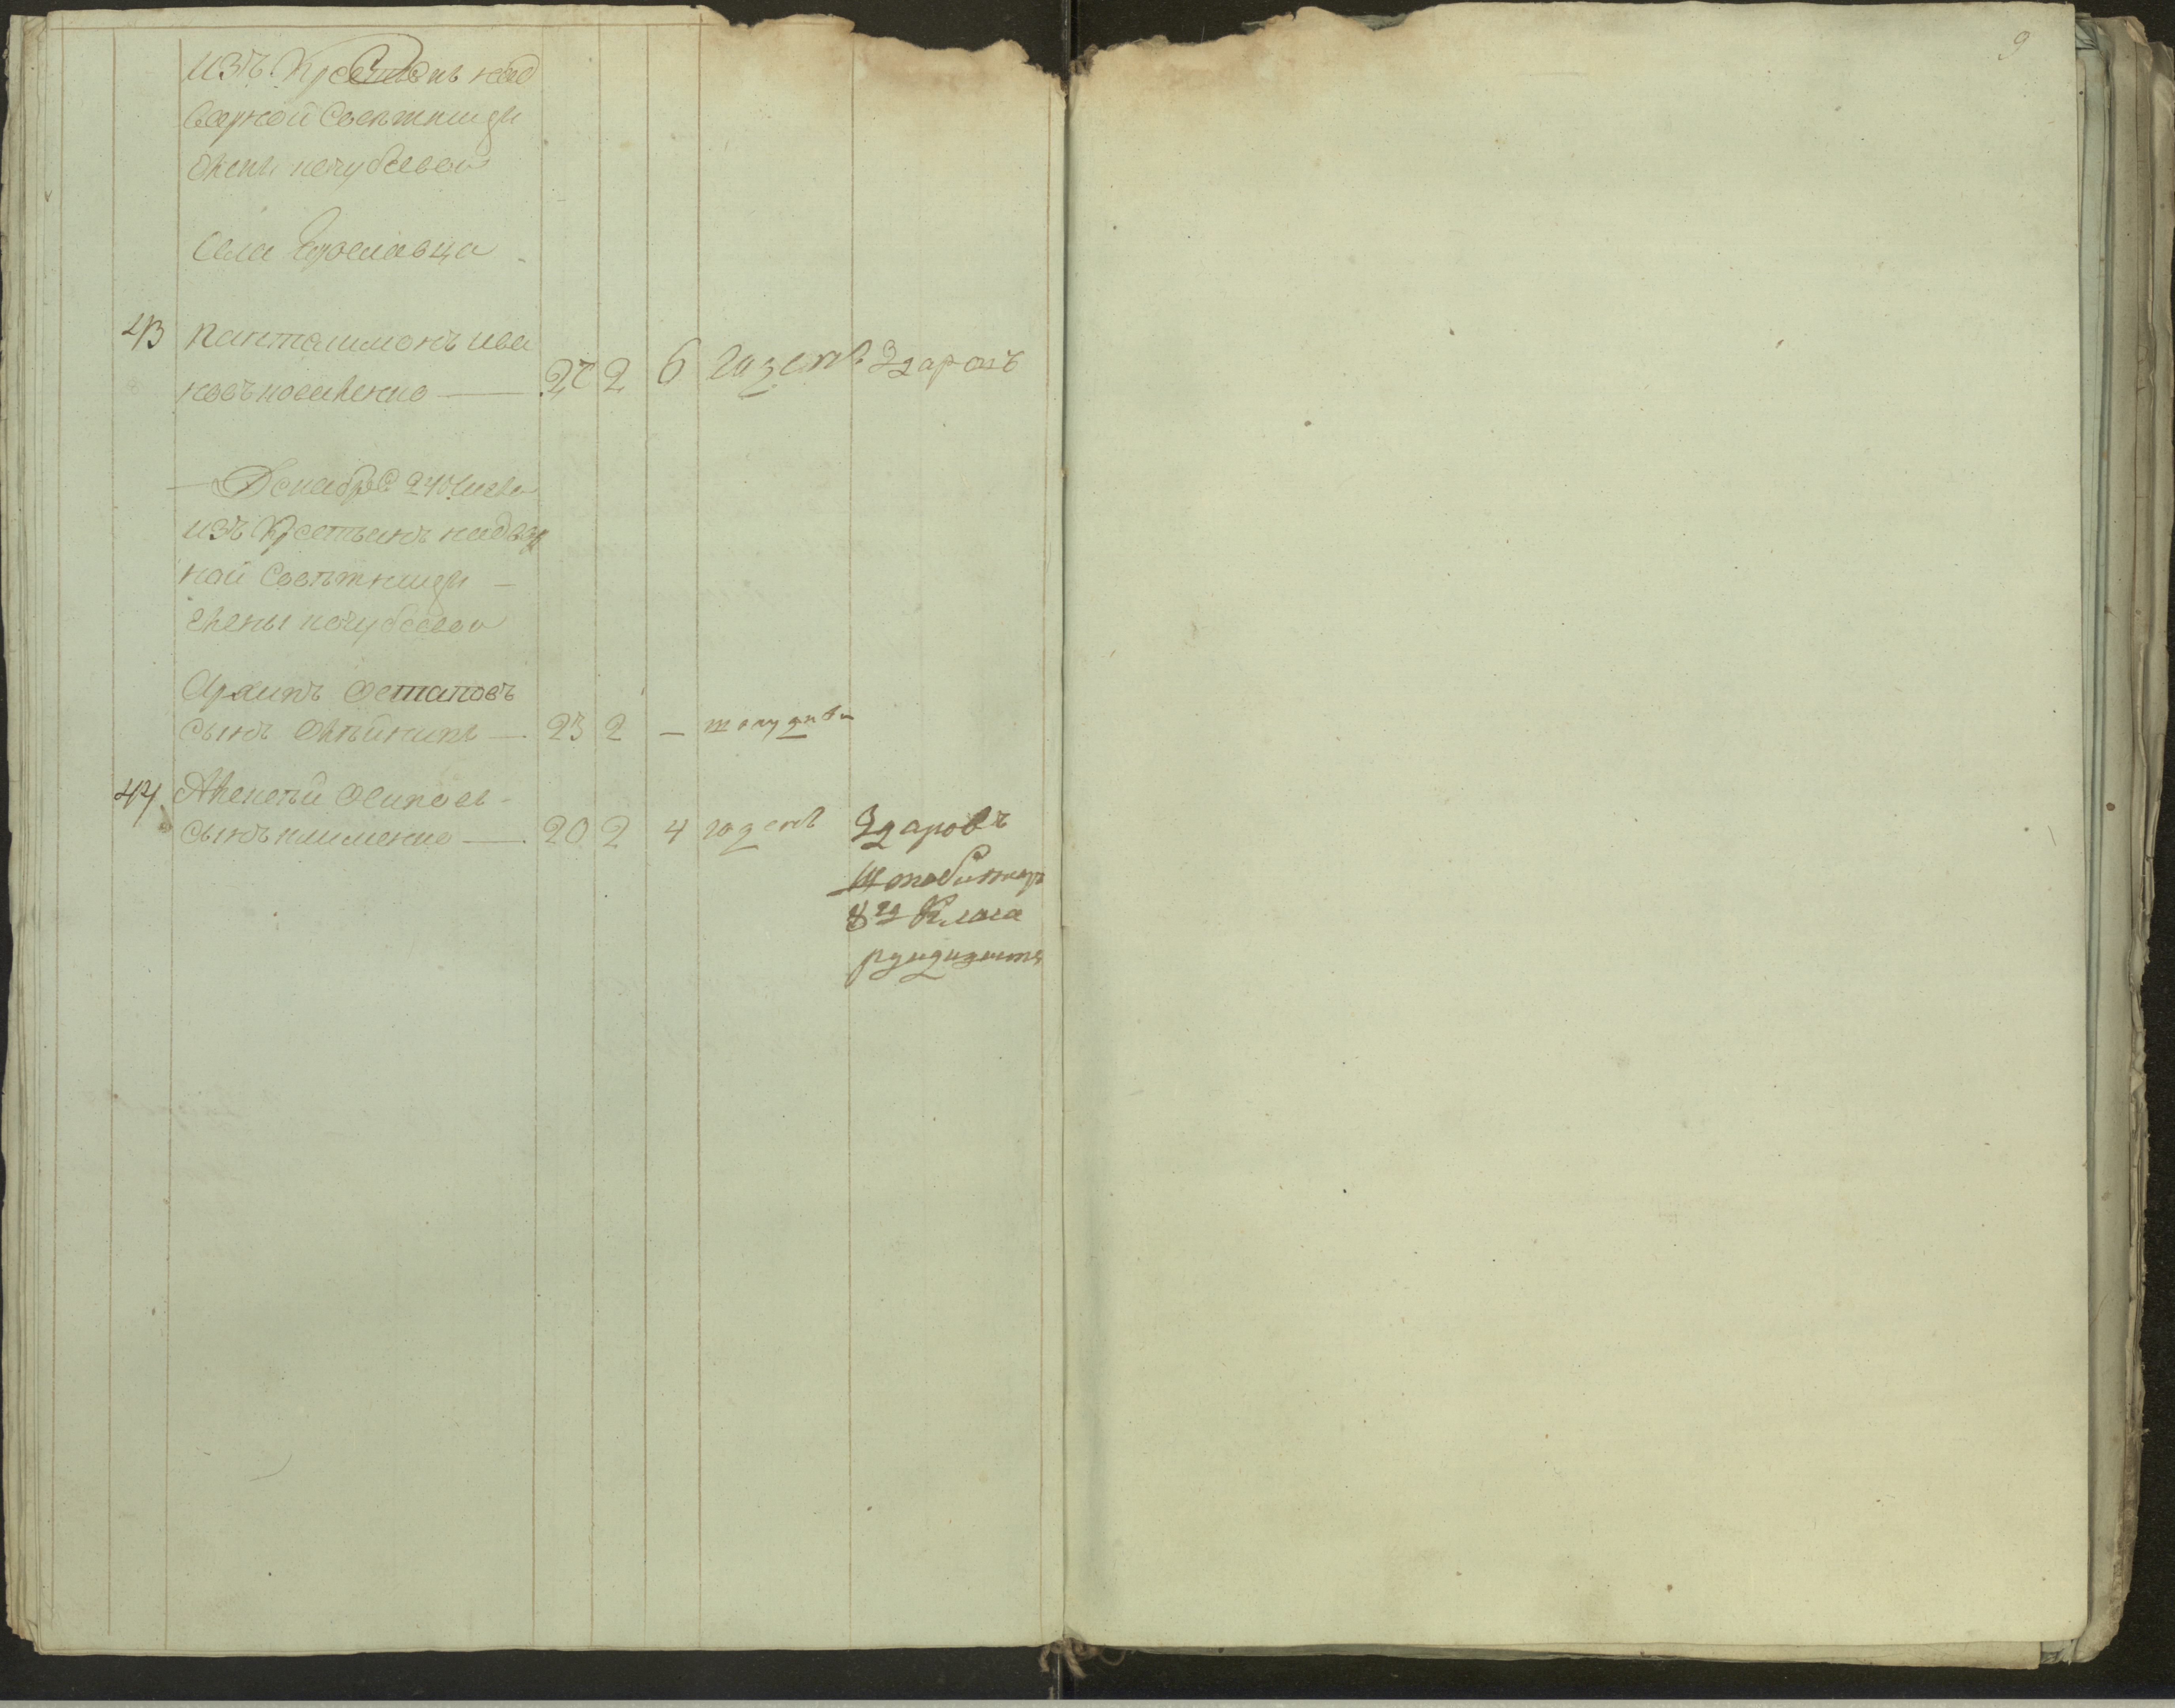 9
изъ Крестьянъ над
ворной Советницы
жены кочубеевой
Села Ярославца
43 пантелимонъ ива
новъ 27 2 6 годенъ Здаровъ
Декабря 24 числа
изъ Крестьянъ надвор
ной Советницы
жены кочубеевой
Архипъ Остаповъ
сынъ Олейникъ — 23 2 —
44 Алексей Осиповъ
сынъ клименко — 20 2 4 годенъ Здаровъ
Штабъ лекарь
8го Класа